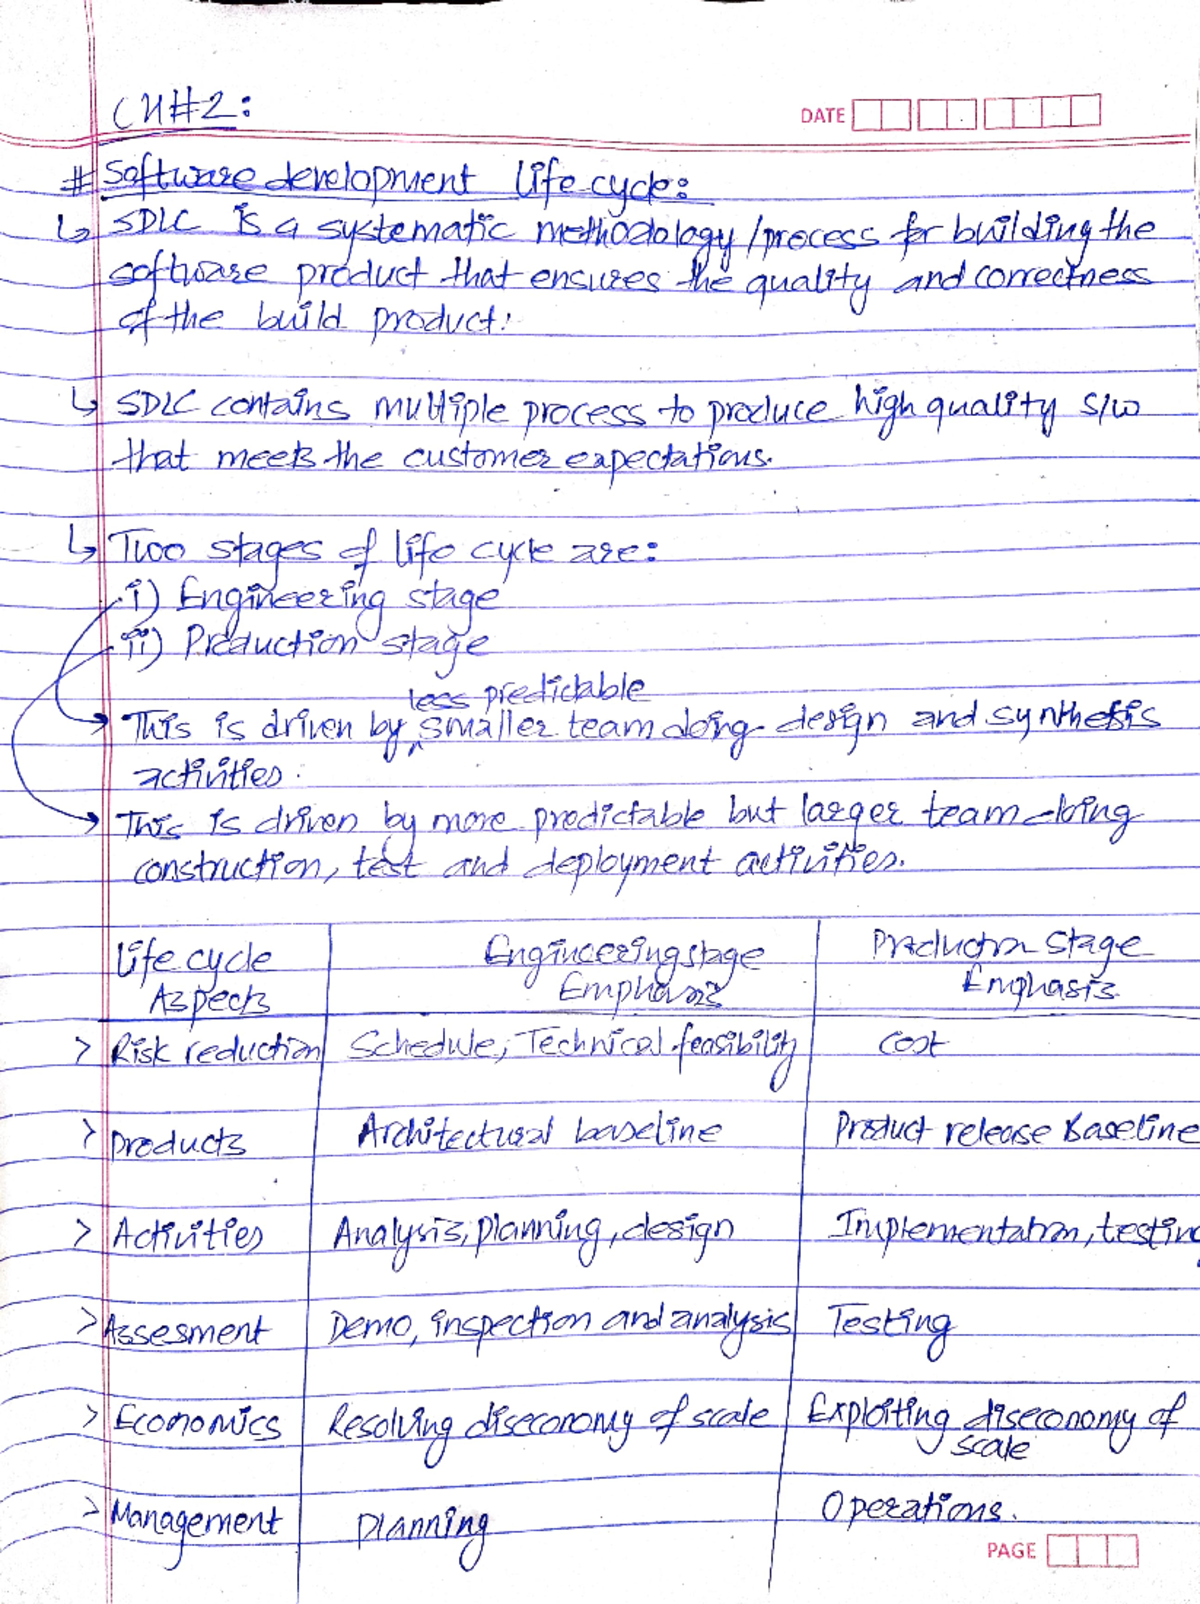 CH#2:
DATE
# Software development life cycle:
↳ SDLC is a systematic methodology/process for building the
software product that ensures the quality and correctness
of the build product.
↳ SDLC contains multiple process to produce high quality s/w
that meets the customer expectations.
↳ Two stages of life cycle are:
i) Engineering stage
ii) Production stage
less predictable
This is driven by ^ smaller team doing design and synthesis
activities.
This is driven by more predictable but larger team doing
construction, test and deployment activities.
Life cycle Aspects | Engineering stage Emphasis | Production Stage Emphasis
> Risk reduction | Schedule, Technical feasibility | cost
> products | Architectural baseline | Product release Baseline
> Activities | Analysis, planning, design | Implementation, testing
> Assesment | Demo, inspection and analysis | Testing
> Economics | Resolving diseconomy of scale | Exploiting diseconomy of scale
> Management | planning | Operations.
PAGE